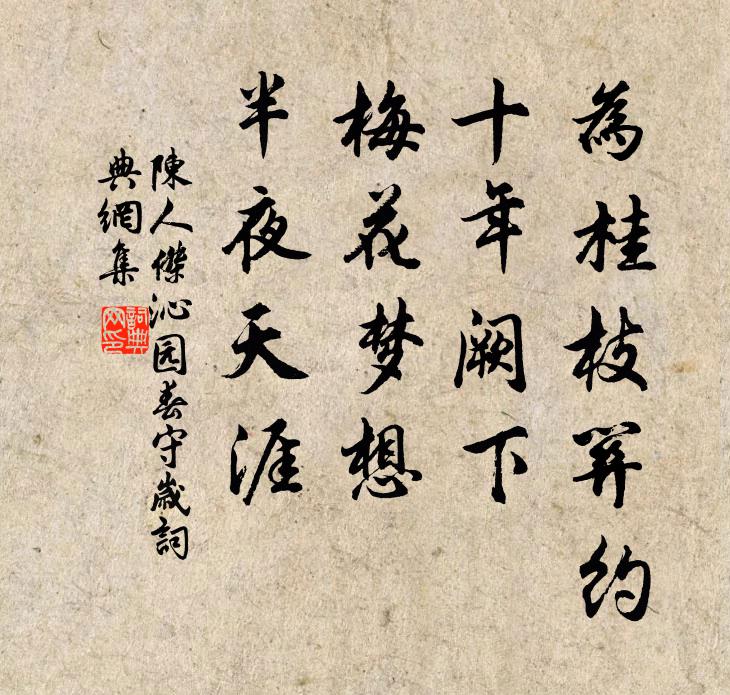 為桂枝關約
十年阙下
梅花梦想
半夜天涯
陳人傑沁园春守歲詞
典網集
詞典
网印